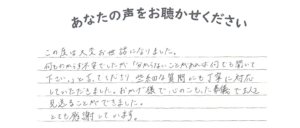 あなたの声をお聴かせください
この度は大変お世話になりました。
何もわからず不安でしたが「分からないことがあれば何でも聞いて
下さい。」と言ってくださり、些細な質問にも丁寧に対応
していただきました。おかげ様で、心のこもった葬儀で故人を
見送ることができました。
とても感謝しています。